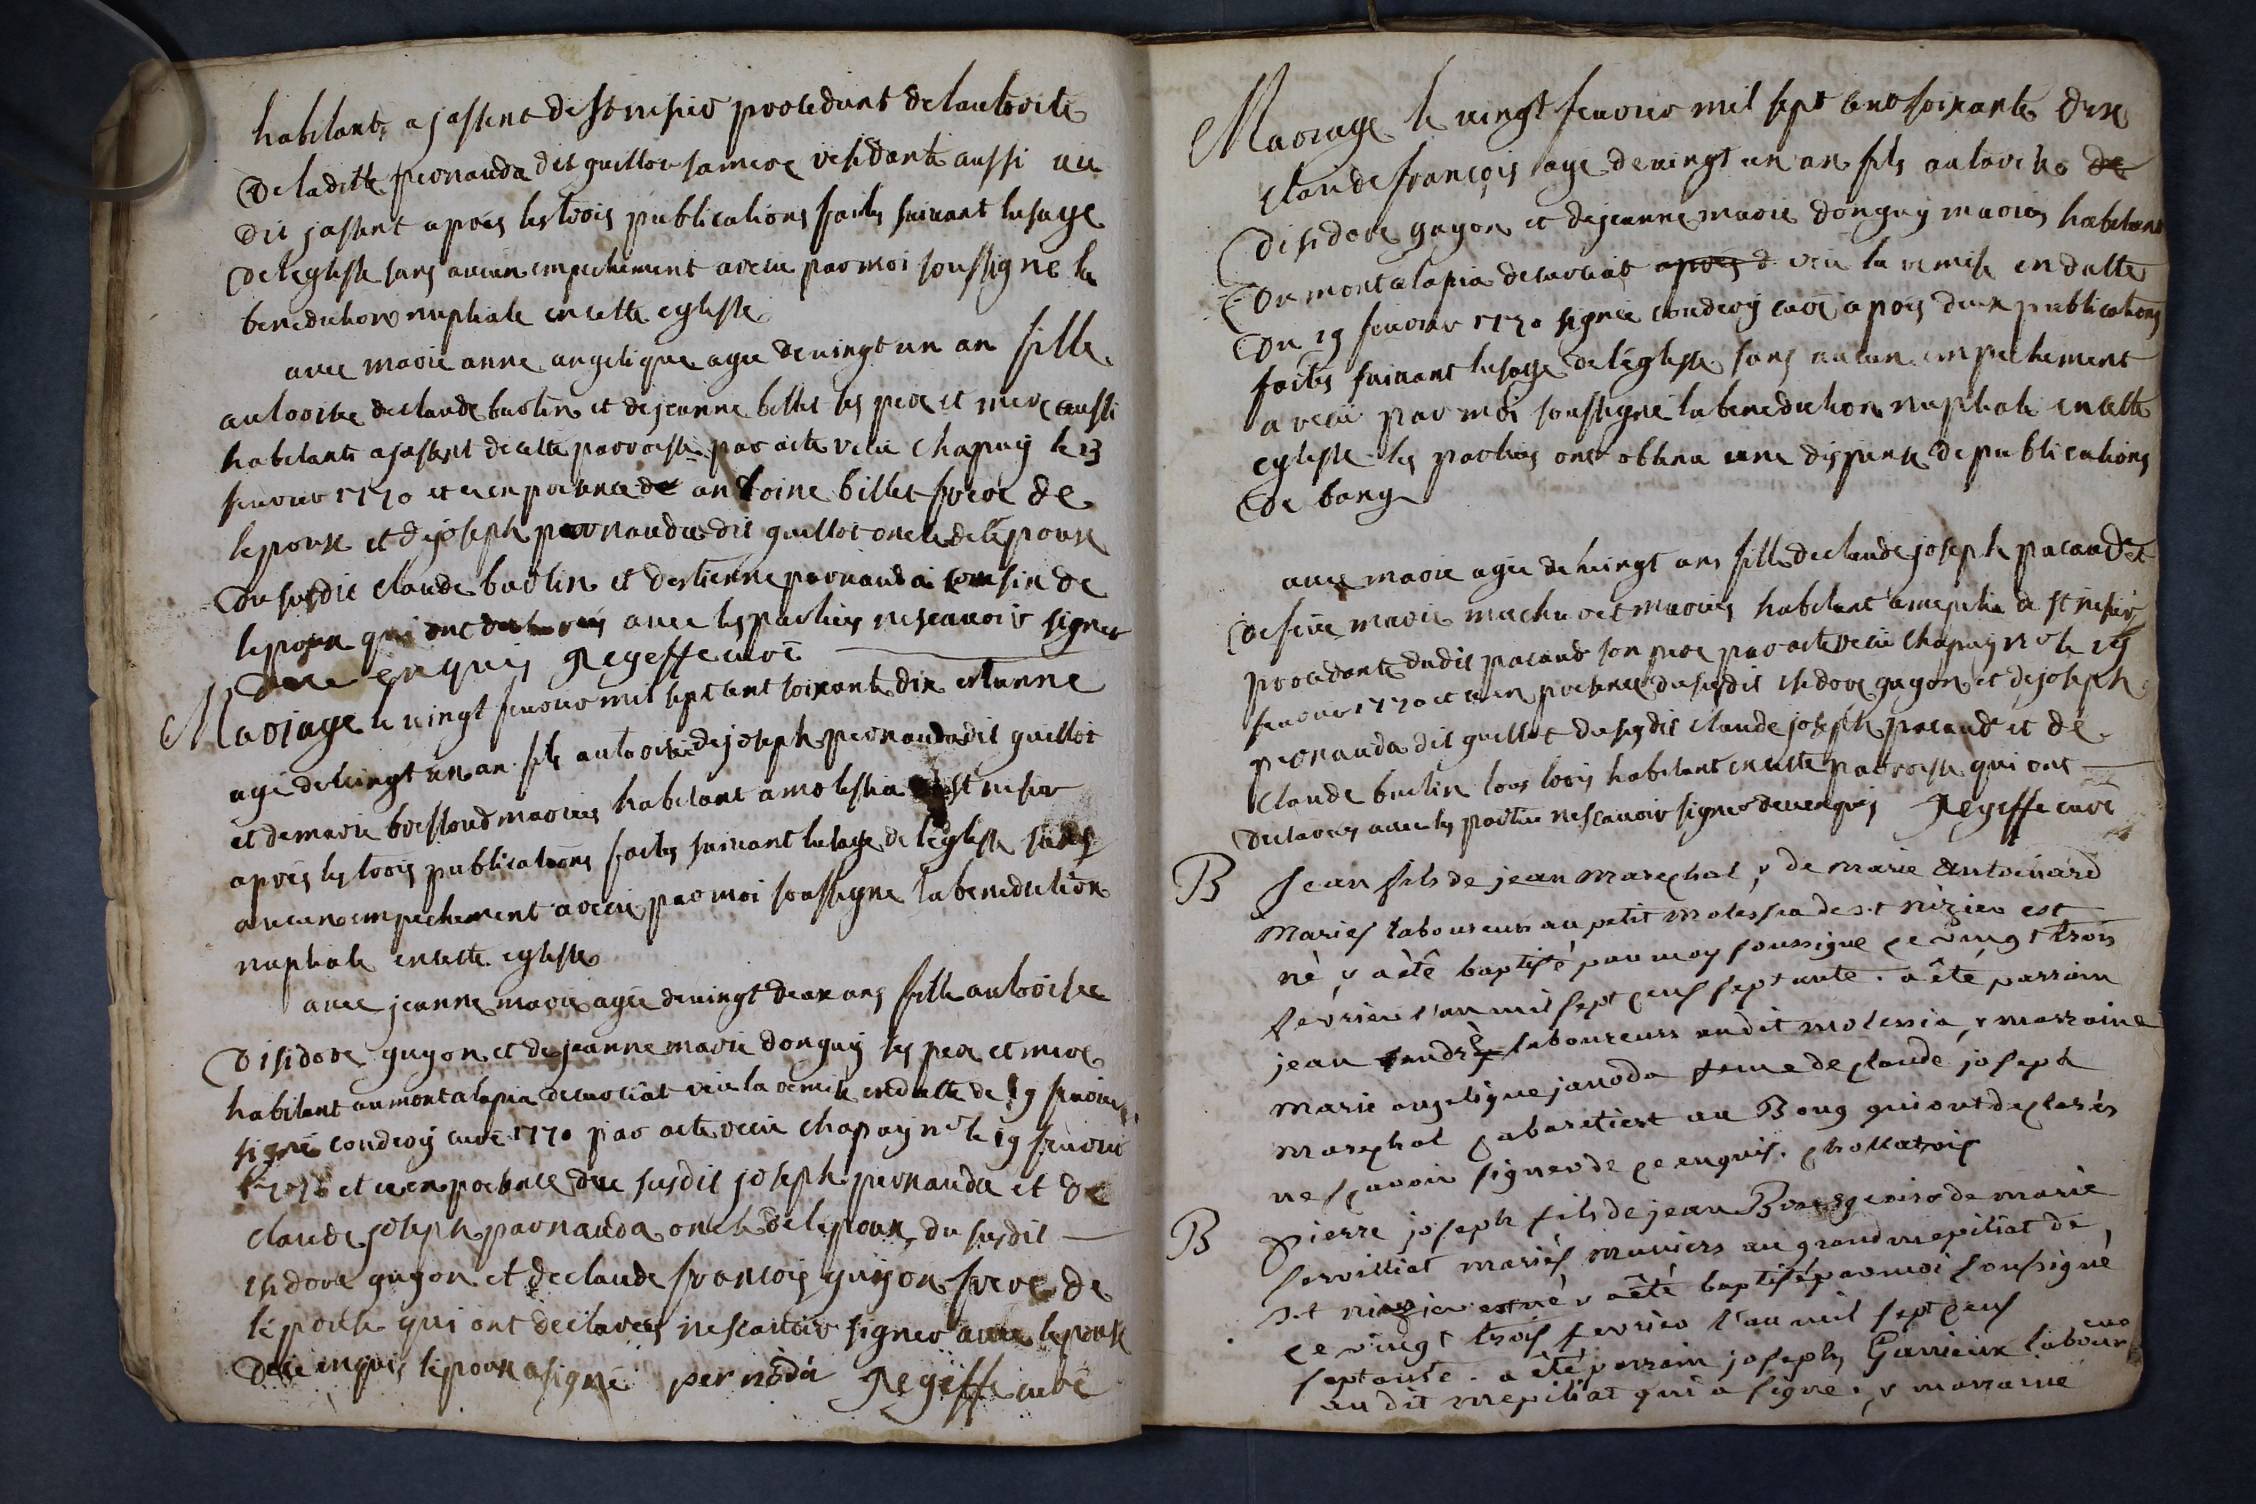 habitants a jassent de st nisier procedant de lautorité
de la ditte pernauda dit guillot sa mere residante aussi au
dit jassent apres les trois publications faites suivant lusage
de leglisse sans aucun empechement a recu par moi soussigné la
benediction nuptiale en cette eglisse
avec marie anne angelique agée de vingt un an fille
autorisée de claude buclin et de jeanne billet les pere et mere aussi
habitants a jassent de cette parroisse par acte recu chapuy le 13
fevrier 1770 et ce en presence de antoine billet frere de
lepouse et de joseph pernauda dit guillot oncle de lépoux
du susdit claude buclin et destienne pernauda cousin de
lepoux qui ont declarés avec les parties ne scavoir signer
de ce enquis Regeffe curé
Mariage le vingt fevrier mil sept cent soixante dix estienne
agé de vingt un an fils autorisé de joseph pernauda dit guillot
et de marie bressoud mariés habitant a molissia st nisier
apres les trois publications faites suivant lusage de léglisse sans
aucun empechement a recu par moi soussigné la benediction
nuptiale en cette eglisse
avec jeanne marie agée de vingt deux ans fille autorisée
disidore guyon et de jeanne marie donguy les pere et mere
habitant au montalapia de curciat veu la remise en datte de 19 fevrier
signé condroy curé 1770 par acte recu chapuy nre le 19 fevrier
1770 et ce en presence du susdit joseph pernauda et de
claude joseph parnauda oncle de lepoux, du susdit
isidore guyon et de claude francois guyon frere de
lépouse qui ont declarés ne scavoir signer avec lepouse
de ce enquis lepoux a signé pernoda Regeffe curé
Mariage le vingt fevrier mil sept cent soixante dix
claude françois agé de vingt un an fils autorisé de
disidore guyon et de jeanne marie donguy mariés habitant
du montalapia de curciat apres d veu la remise en datte
du 19 fevrier 1770 signée condroy curé apres deux publications
faites suivant lusage de léglisse sans aucun empechement
a recu par moi soussigné la benediction nuptiale en cette
eglisse les parties ont obtenu une dispense de publications
de bans
avec marie agée de vingt ans fille de claude joseph pacaud et
de feue marie machuret mariés habitant a mepilia de st nisier
procedante dudit pacaud son pere par acte recu chapuy nre le 19
fevrier 1770 et ce en presence du susdit isidore guyon et de joseph
pernauda dit guillot du susdit claude joseph pacaud et de
claude buclin tous trois habitant en cette parroisse qui ont
declarés avec les parties ne scavoir signer de ce enquis Regeffe curé
B Jean fils de jean marechal, & de marie Antoinard
mariés laboureurs au petit molessia de s.t nizier est
né, & a été baptisé par moy soussigné ce vingt trois
fevrier l'an mil sept cens septante. a été parrain
jean laboureur audit molessia, & marraine
marie angelique janoda feme de claude joseph
marechal cabaretiert au Bourg qui ont declarés
ne sçavoir signer de ce enquis. chollatrois
B pierre joseph fils de jean Bourgeois & de marie
servilliat mariés muniers au grand mepiliat de
s.t nizier est né & a été baptisé par moi soussigné,
ce vingt trois fevrier l'an mil sept cens
septante. a été parrain joseph Ganieux laboureur
au dit mepiliat qui a signé, & marraine